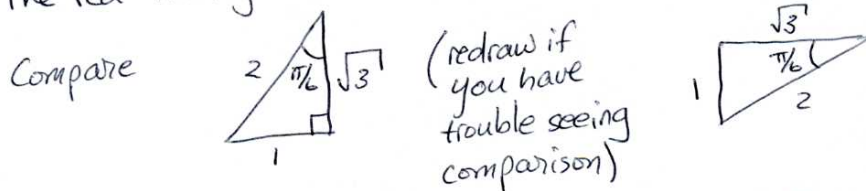 Compare
2
π/6
√3
1
(redraw if
you have
trouble seeing
comparison)
√3
π/6
1
2